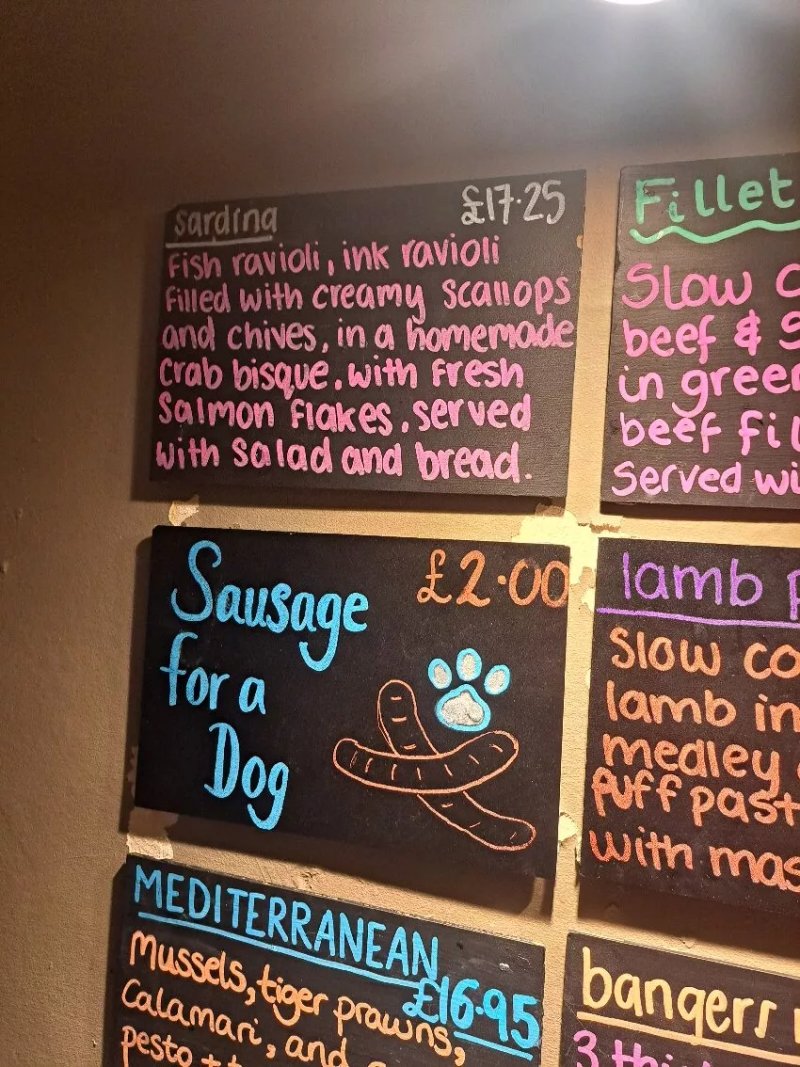 Sardina £17.25
Fish ravioli, ink ravioli
Filled with creamy scallops
and chives, in a homemade
crab bisque. with fresh
Salmon flakes. served
with salad and bread.
Fillet
Slow
beef &
in
beef
served
Sausage £2.00
for a
Dog
lamb
Slow
lamb in
medley
puff
with
MEDITERRANEAN
£16.95
Mussels, tiger prawns,
Calamari, and
pesto
bangers
3